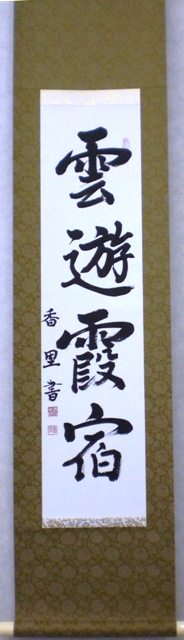 雲遊霞宿
香里書